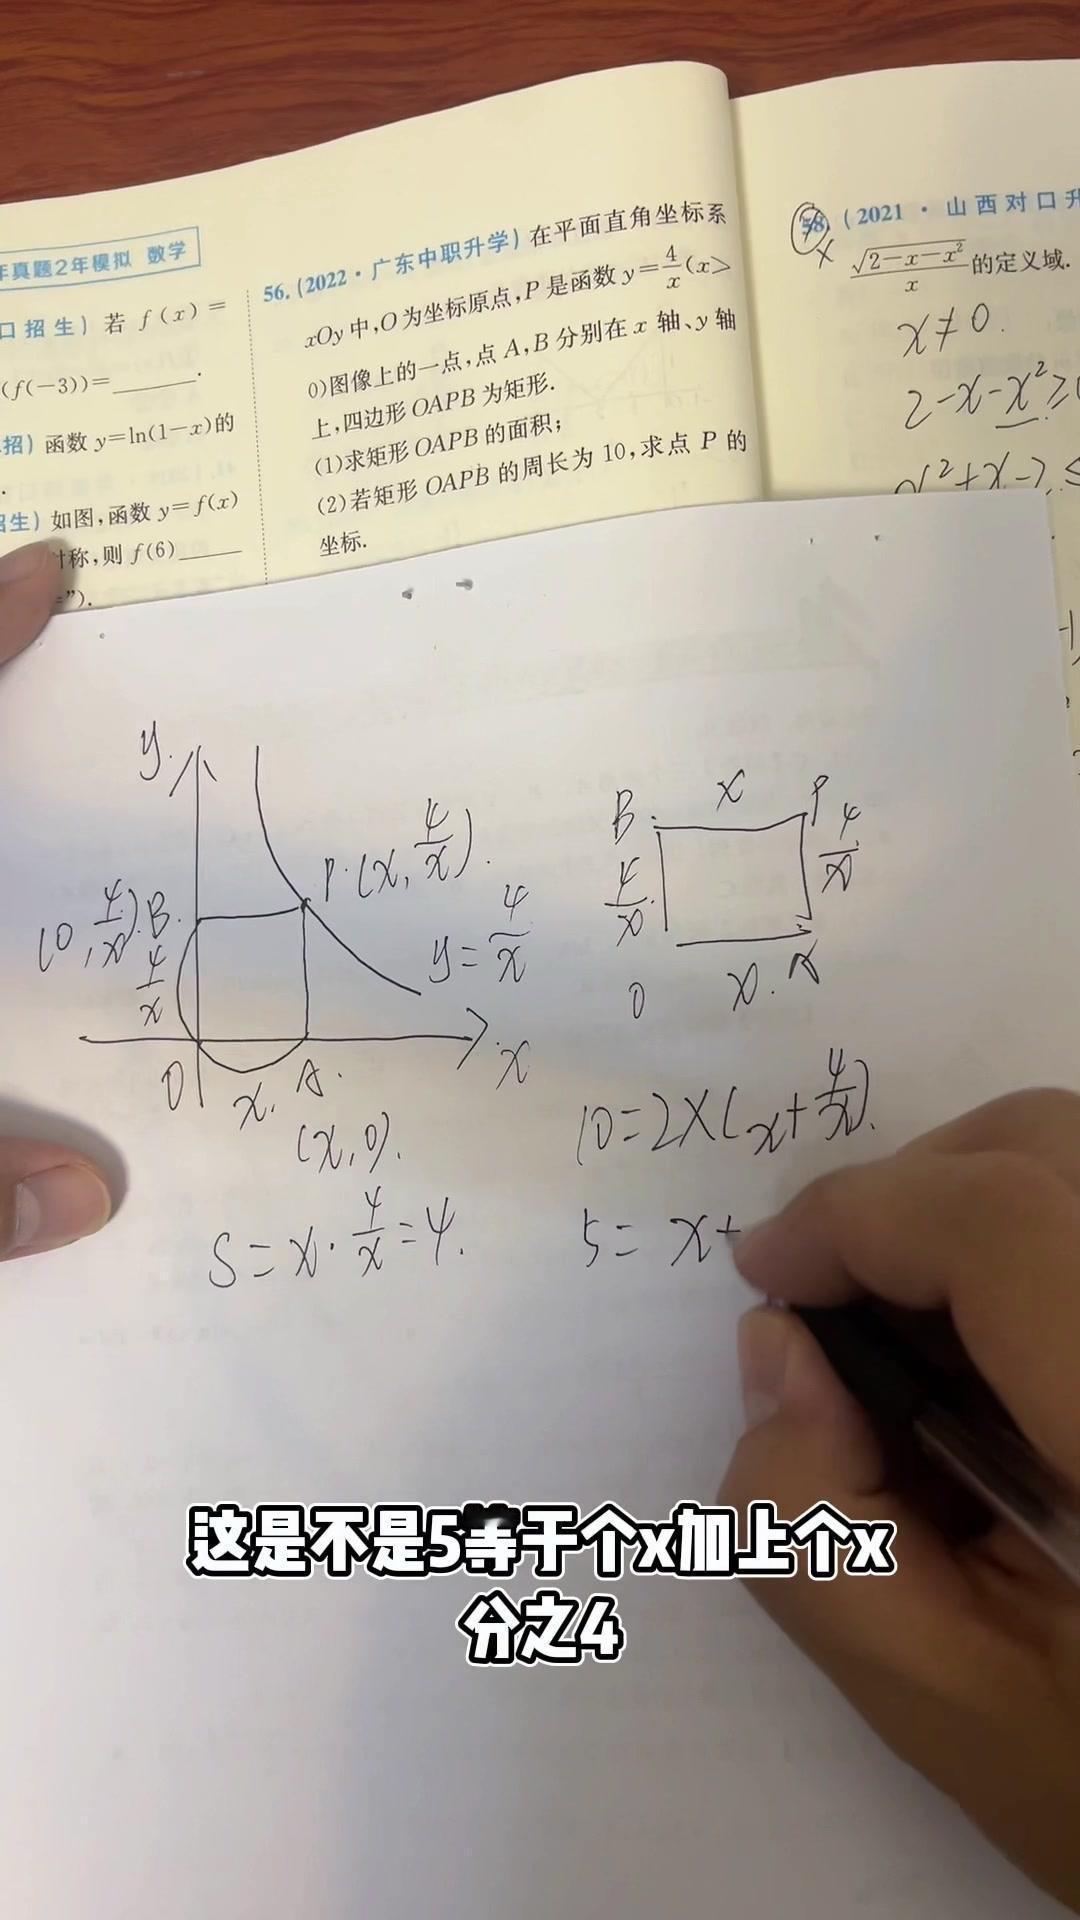 年真题2年模拟 数学
口招生) 若 f(x)=
(f(-3))=______.
招) 函数 y=ln(1-x)的
.
招生) 如图,函数 y=f(x)
对称,则 f(6)____
=").
56.(2022·广东中职升学) 在平面直角坐标系
xOy 中,O 为坐标原点,P 是函数 y=4/x (x>
0)图像上的一点,点 A,B 分别在 x 轴、y 轴
上,四边形 OAPB 为矩形.
(1)求矩形 OAPB 的面积;
(2)若矩形 OAPB 的周长为 10,求点 P 的
坐标.
58. (2021·山西对口升
√(2-x-x²)/x 的定义域.
x≠0.
2-x-x²≥0
x²+x-2≤
y
P.(x, 4/x).
(0, 4/x) B.
4/x
y=4/x
O
x. A.
x
(x,0).
S=x·4/x=4.
B. x P
4/x
4/x
O x. A
10=2×(x+4/x).
5= x+
这是不是5等于个x加上个x
分之4